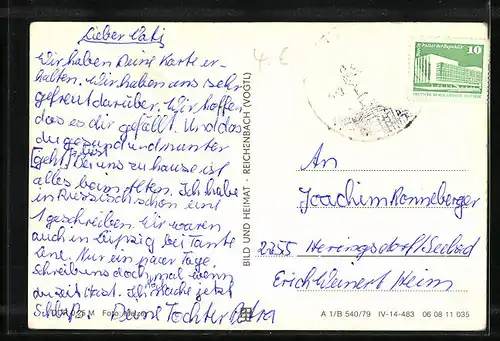 Lieber Vati,
Wir haben Deine Karte er-
halten. Wir haben uns sehr
gefreut darüber. Wir hoffen
das es dir gefällt. Und das
du gesund und munter
bist
geht. Bei uns zu hause ist
alles beim Alten. Ich habe
in Russisch schon eine
1 geschrieben. Wir waren
auch in Leipzig bei Tante
Nur ein paar Tage.
Schreib uns doch mal wenn
du Zeit hast. Ich mache jetzt
Schluß. Deine Tochter Petra
M Foto
BILD UND HEIMAT · REICHENBACH (VOGTL)
4. €
Palast der Republik 10
An
Joachim Ronneberger
2255 Heringsdorf/Seebad
Erich Weinert Heim
A 1/B 540/79 IV-14-483 06 08 11 035